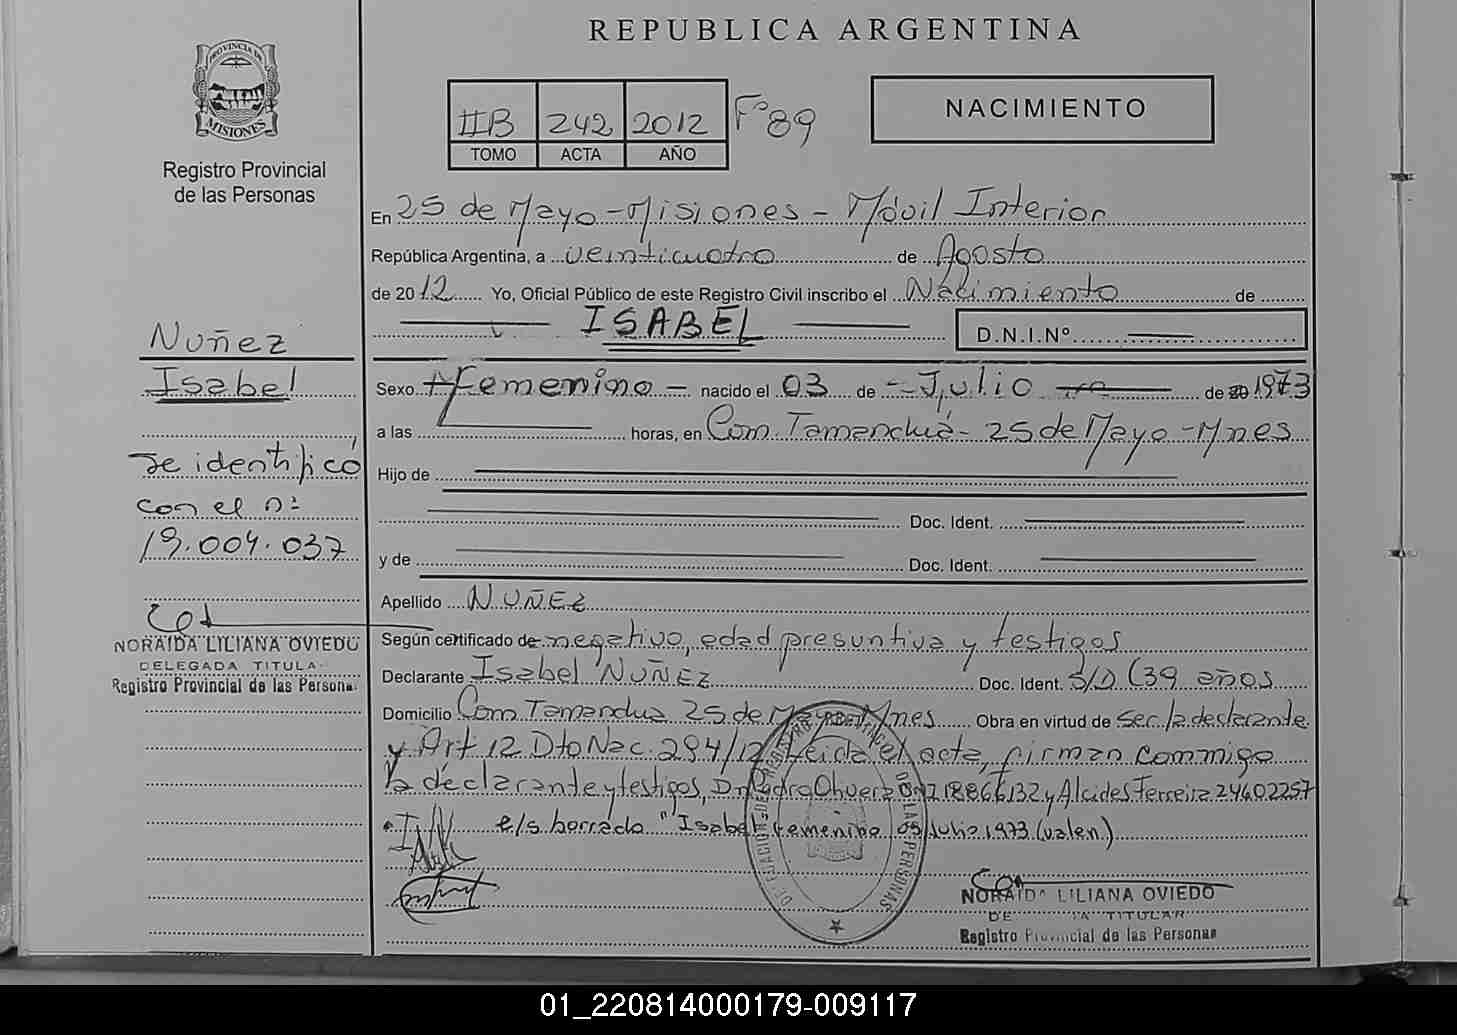 REPUBLICA ARGENTINA
PROVINCIA DE
MISIONES
Registro Provincial
de las Personas
IIB 242 2012 Fº 89
TOMO ACTA AÑO
NACIMIENTO
En 25 de Mayo - Misiones - Móvil Interior
República Argentina, a veinticuatro de Agosto
de 2012 Yo, Oficial Público de este Registro Civil inscribo el Nacimiento de
ISABEL D.N.I.Nº
Nuñez
Isabel
se identificó
con el nº
19.004.037
NORAIDA LILIANA OVIEDO
DELEGADA TITULA
Registro Provincial de las Persona
Sexo Femenino - nacido el 03 de - Julio de 20 1973
a las horas, en Com. Tamanduá - 25 de Mayo - Mnes
Hijo de
Doc. Ident.
y de Doc. Ident.
Apellido NUÑEZ
Según certificado de negativo, edad presuntiva y testigos
Declarante Isabel NUÑEZ Doc. Ident. S/D (39 años
Domicilio Com Tamandua 25 de Mayo Mnes Obra en virtud de ser la declarante
y Art 12 Dto Nac. 294/12. Leida el acta, firman conmigo
la declarante y testigos, Dn Pedro 18866132 y Alcides Ferreira 24602257
e/s borrado "Isabel Femenino 03 Julio 1973 (valen)
NORAIDA LILIANA OVIEDO
DE TA TITULAR
Registro Provincial de las Personas
01_220814000179-009117